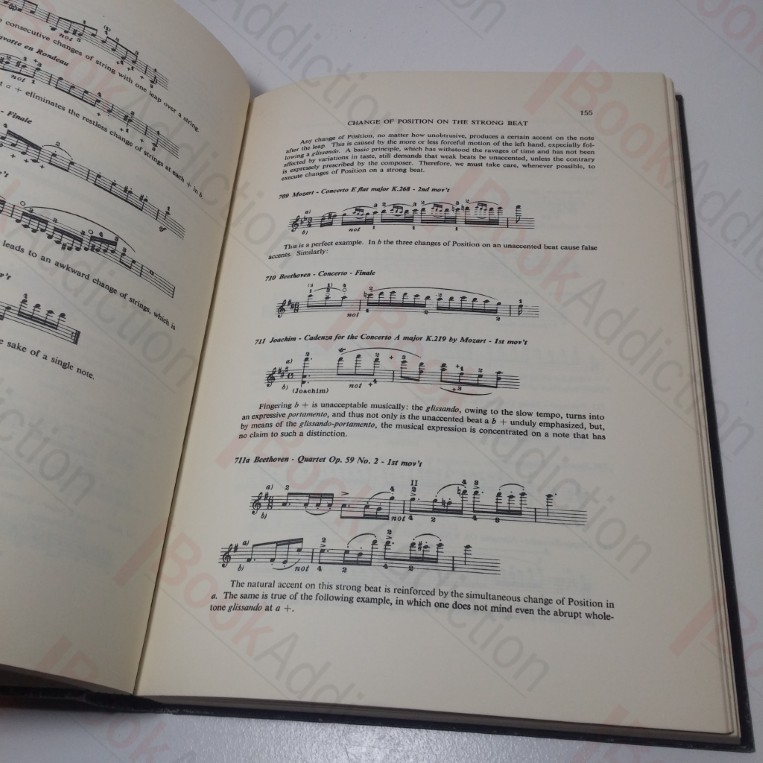 consecutive changes of string with one leap over a string.
avotte en Rondeau
not
a + eliminates the restless change of strings at each + in b.
- Finale
leads to an awkward change of strings, which is
v't
e sake of a single note.
155
CHANGE OF POSITION ON THE STRONG BEAT
Any change of Position, no matter how unobtrusive, produces a certain accent on the note
after the leap. This is caused by the more or less forceful motion of the left hand, especially fol-
lowing a glissando. A basic principle, which has withstood the ravages of time and has not been
affected by variations in taste, still demands that weak beats be unaccented, unless the contrary
is expressly prescribed by the composer. Therefore, we must take care, whenever possible, to
execute changes of Position on a strong beat.
709 Mozart - Concerto E flat major K.268 - 2nd mov't
a)
b) not
This is a perfect example. In b the three changes of Position on an unaccented beat cause false
accents. Similarly:
710 Beethoven - Concerto - Finale
not
711 Joachim - Cadenza for the Concerto A major K.219 by Mozart - 1st mov't
a)
b) (Joachim) not
Fingering b + is unacceptable musically: the glissando, owing to the slow tempo, turns into
an expressive portamento, and thus not only is the unaccented beat a b + unduly emphasized, but,
by means of the glissando-portamento, the musical expression is concentrated on a note that has
no claim to such a distinction.
711a Beethoven - Quartet Op. 59 No. 2 - 1st mov't
a)
b) not
a)
b) not
The natural accent on this strong beat is reinforced by the simultaneous change of Position in
a. The same is true of the following example, in which one does not mind even the abrupt whole-
tone glissando at a +.
BookAddiction